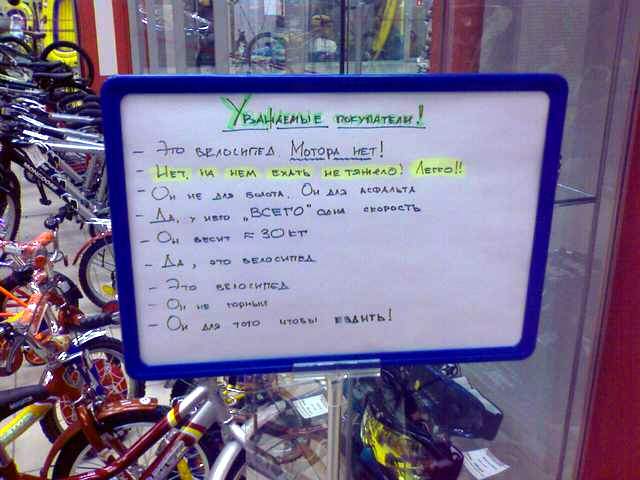 Уважаемые покупатели!
- Это велосипед. Мотора нет!
- Нет, на нем ехать не тяжело! Легко!!
- Он не для болота. Он для асфальта
- Да, у него „ВСЕГО" одна скорость
- Он весит ≈ 30 кг
- Да, это велосипед
- Это велосипед
- Он не горный
- Он для того чтобы ездить!